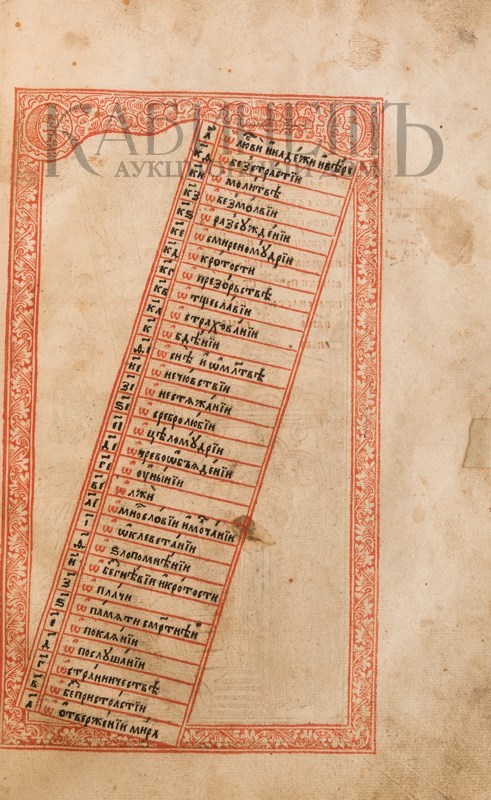 КАБИНЕТЪ
АУКЦИОННЫЙ ДОМ
л ѡ люби и надежи и вѣре
ѡ безстрастїи
ки ѡ молитвѣ
кз ѡ безмолвїи
кѕ ѡ разсужденїи
ке ѡ смиреномудрїи
кд ѡ кротости
кг ѡ презорьствѣ
кв ѡ тщеславїи
ка ѡ страхованїи
к ѡ бдѣнїи
ѡ снѣ и ѡ мл҃твѣ
ѡ нечювствїи
зі ѡ нестѧжанїи
ѕі ѡ сребролюбїи
ѡ цѣломудрїи
ді ѡ чревоѡбъѧденїи
гі ѡ оунынїи
ві ѡ лжи
аі ѡ многословїи и молчанїи
і ѡ ѡклеветанїи
ѡ ѕлопомнѣнїи
и ѡ безгнѣвїи и кротости
з ѡ плачи
ѕ ѡ памѧти смертнѣй
е ѡ покаѧнїи
д ѡ послушанїи
г ѡ странничествѣ
в ѡ безпристрастїи
а ѡ ѿверженїи мира